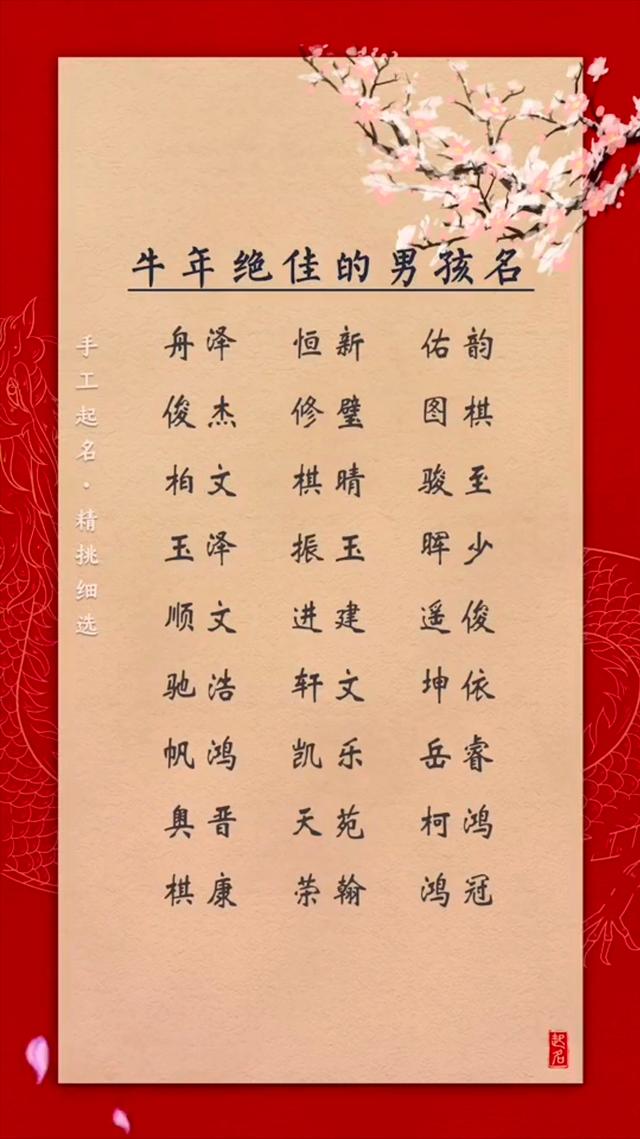 牛年绝佳的男孩名
手工起名·精挑细选
舟泽 恒新 佑韵
俊杰 修璧 图棋
柏文 棋晴 骏至
玉泽 振玉 晖少
顺文 进建 遥俊
驰浩 轩文 坤依
帆鸿 凯乐 岳睿
奥晋 天苑 柯鸿
棋康 荣翰 鸿冠
起名